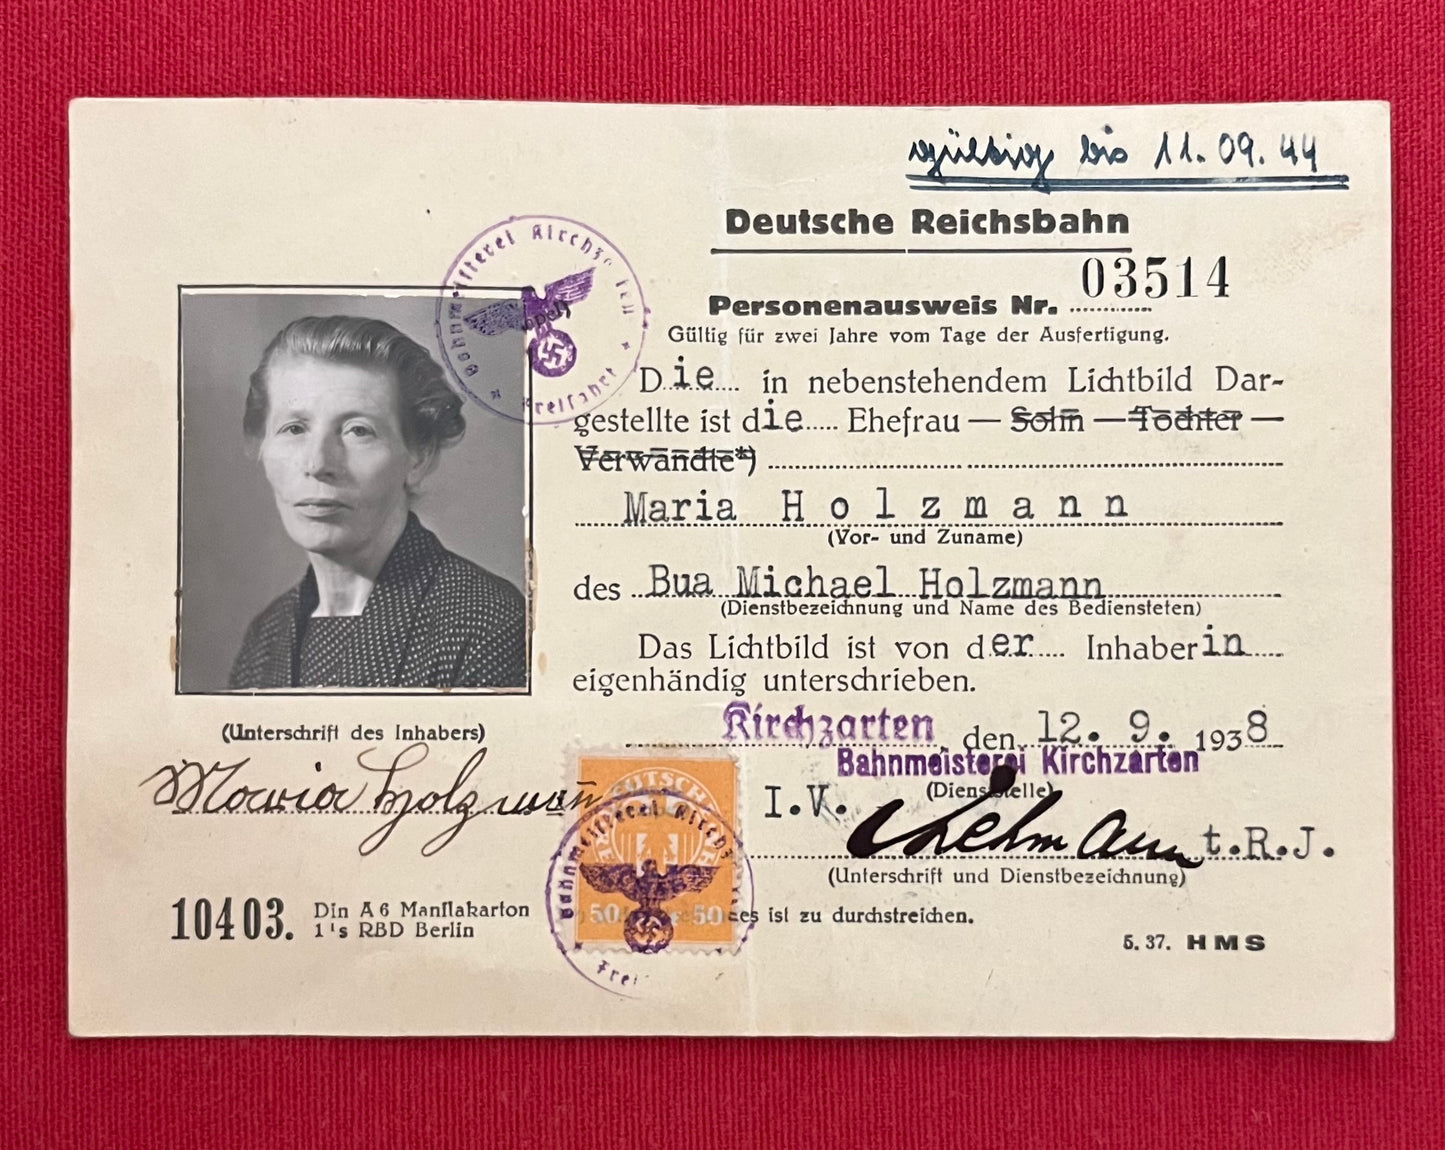 gültig bis 11.09.44
Deutsche Reichsbahn
Personenausweis Nr. 03514
Gültig für zwei Jahre vom Tage der Ausfertigung.
Die in nebenstehendem Lichtbild Dar-
gestellte ist die Ehefrau — Sohn — Tochter —
Verwandte*)
Maria Holzmann
(Vor- und Zuname)
des Bua Michael Holzmann
(Dienstbezeichnung und Name des Bediensteten)
Das Lichtbild ist von der Inhaberin
eigenhändig unterschrieben.
Kirchzarten, den 12. 9. 1938
Bahnmeisterei Kirchzarten
(Dienststelle)
I.V. Lehmann t.R.J.
(Unterschrift und Dienstbezeichnung)
es ist zu durchstreichen.
5. 37. HMS
Bahnmeisterei Kirchzarten
Freifahrt
(Unterschrift des Inhabers)
Maria Holzmann
10403. Din A6 Manilakarton
1's RBD Berlin
Bahnmeisterei Kirchz
Frei
50 50